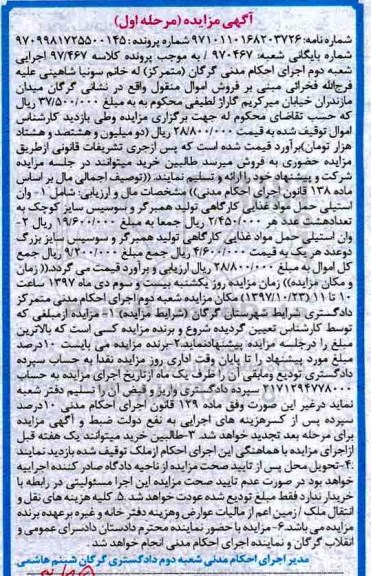 آگهی مزایده (مرحله اول)
شماره نامه: ۹۷۱۰۱۱۰۱۶۸۲۰۳۷۲۶ شماره پرونده : ۹۷۰۹۹۸۱۷۲۵۵۰۰۱۴۵
شماره بایگانی شعبه: ۹۷۰۴۶۷ / به موجب پرونده کلاسه ۹۷/۴۶۷ اجرایی
شعبه دوم اجرای احکام مدنی گرگان (متمرکز) له خانم سونیا شاهینی علیه
فرج‌الله فخرائی مبنی بر فروش اموال منقول واقع در نشانی گرگان میدان
مازندران خیابان میرکریم گاراژ لطیفی محکوم به به مبلغ ۳۷/۵۰۰/۰۰۰ ریال
که حسب تقاضای محکوم له جهت برگزاری مزایده وطی بازدید کارشناس
اموال توقیف شده به قیمت ۲۸/۸۰۰/۰۰۰ ریال (دو میلیون و هشتصد و هشتاد
هزار تومان)برآورد قیمت شده است که پس ازجری تشریفات قانونی ازطریق
مزایده حضوری به فروش میرسد طالبین خرید میتوانند در جلسه مزایده
شرکت و پیشنهاد خود را ارائه و تسلیم نمایند. ((توصیف اجمالی مال بر اساس
ماده ۱۳۸ قانون اجرای احکام مدنی)) مشخصات مال و ارزیابی: شامل ۱- وان
استیلی حمل مواد غذایی کارگاهی تولید همبرگر و سوسیس سایز کوچک به
تعدادهشت عدد هر ۲/۴۵۰/۰۰۰ ریال جمعا به مبلغ ۱۹/۶۰۰/۰۰۰ ریال ۲-
وان استیلی حمل مواد غذایی کارگاهی تولید همبرگر و سوسیس سایز بزرگ
دوعدد هر یک به قیمت ۴/۶۰۰/۰۰۰ ریال جمع مبلغ ۹/۲۰۰/۰۰۰ ریال جمع
کل اموال به مبلغ ۲۸/۸۰۰/۰۰۰ ریال ارزیابی و برآورد قیمت می گردد.(( زمان
و مکان مزایده)) زمان مزایده روز یکشنبه بیست و سوم دی ماه ۱۳۹۷ ساعت
۱۰ تا ۱۱ (۱۳۹۷/۱۰/۲۳) مکان مزایده شعبه دوم اجرای احکام مدنی متمرکز
دادگستری شرایط شهرستان گرگان (شرایط مزایده) ۱- مزایده ازمبلغی که
توسط کارشناس تعیین گردیده شروع و برنده مزایده کسی است که بالاترین
مبلغ را درجلسه مزایده پیشنهادنماید.۲-برنده مزایده می بایست ۱۰درصد
مبلغ مورد پیشنهاد را تا پایان وقت اداری روز مزایده نقدا به حساب سپرده
دادگستری تودیع ومابقی آن را ظرف یک ماه ازتاریخ اجرای مزایده به حساب
۲۱۷۱۲۹۴۷۷۸۰۰۰ سپرده دادگستری واریز و فیض آن را تسلیم دفتر شعبه
نماید درغیر این صورت وفق ماده ۱۲۹ قانون اجرای احکام مدنی ۱۰درصد
سپرده پس از کسرهزینه های اجرایی به نفع دولت ضبط و آگهی مزایده
برای مرحله بعد تجدید خواهد شد. ۳-طالبین خرید میتوانند یک هفته قبل
ازاجرای مزایده با هماهنگی این اجرای احکام ازملک توقیف شده بازدید نمایند
.۴-تحویل محل پس از تایید صحت مزایده از ناحیه دادگاه صادر کننده اجراییه
خواهد بود در صورت عدم تایید صحت مزایده این اجرا مسئولیتی در رابطه با
خریدار ندارد فقط مبلغ تودیع شده عودت خواهد شد .۵ کلیه هزینه های نقل و
انتقال ملک / زمین اعم از مالیات عوارض وهزینه دفتر خانه و غیره برعهده برنده
مزایده می باشد.۶-مزایده با حضور نماینده محترم دادستان دادسرای عمومی و
انقلاب گرگان و نماینده اجرای احکام مدنی انجام خواهد شد.
مدیر اجرای احکام مدنی شعبه دوم دادگستری گرگان شبنم هاشمی